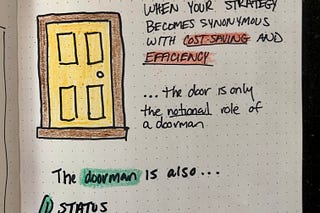 WHEN YOUR STRATEGY
BECOMES SYNONYMOUS
WITH COST-SAVING AND
EFFICIENCY
... the door is only
the notional role of
a doorman
The doorman is also...
1) STATUS